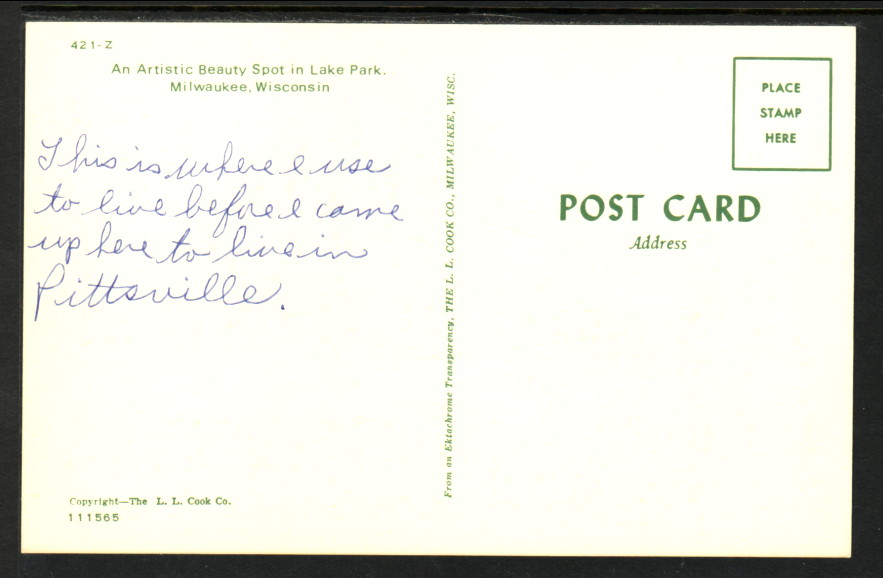 421-Z
An Artistic Beauty Spot in Lake Park.
Milwaukee, Wisconsin
This is where I use
to live before I came
up here to live in
Pittsville.
Copyright—The L. L. Cook Co.
111565
From an Ektachrome Transparency, THE L. L. COOK CO., MILWAUKEE, WISC.
PLACE
STAMP
HERE
POST CARD
Address